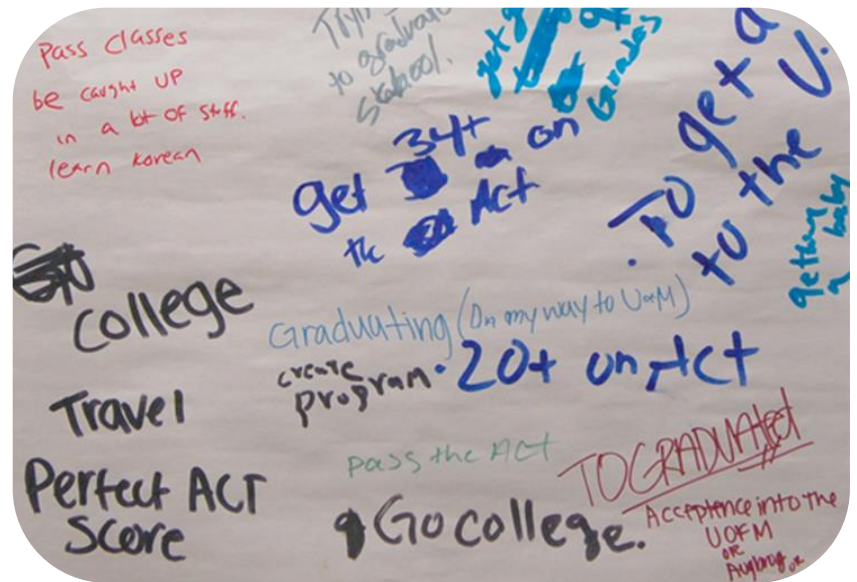 Pass Classes
be caught up
in a lot of stuff.
learn Korean
to graduate
Skabool.
get
Grades
get 34+ on
the Act
To get a
to the U.
getting
a baby
College
Travel
Perfect ACT
Score
Graduating (On my way to UofM)
create
program
• 20+ on Act
pass the ACT
Go college.
TO GRADUATED
Acceptence into the
UOFM
OR
Augburg or